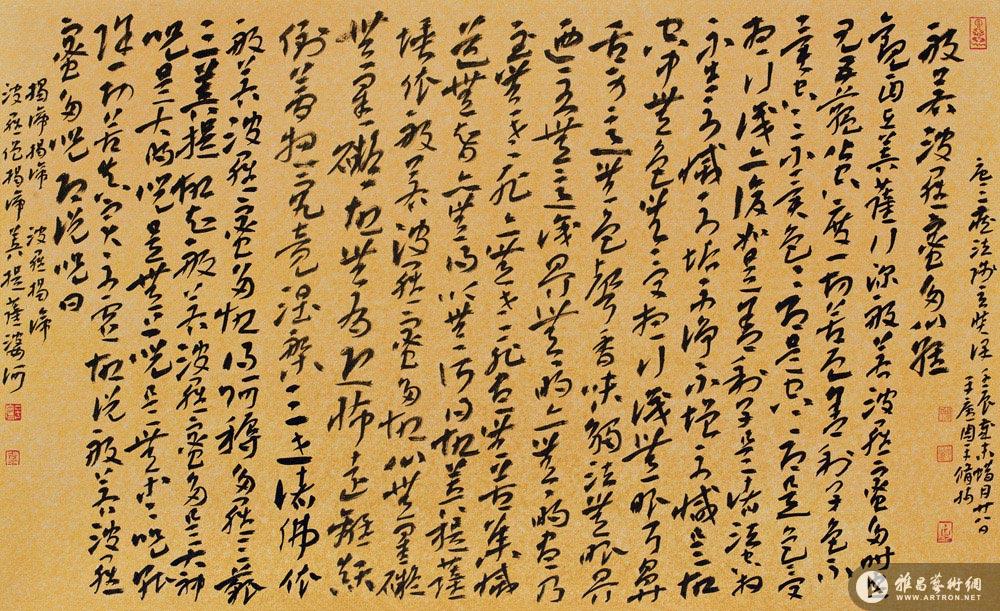 唐三藏法師玄奘譯
般若波羅蜜多心經
觀自在菩薩行深般若波羅蜜多時照
見五蘊皆空度一切苦厄舍利子色不
異空空不異色色即是空空即是色受
想行識亦復如是舍利子是諸法空相
不生不滅不垢不淨不增不減是故
空中無色無受想行識無眼耳鼻
舌身意無色聲香味觸法無眼界
乃至無意識界無無明亦無無明盡乃
至無老死亦無老死盡無苦集滅
道無智亦無得以無所得故菩提薩
埵依般若波羅蜜多故心無罣礙
無罣礙故無有恐怖遠離顛
倒夢想究竟涅槃三世諸佛依
般若波羅蜜多故得阿耨多羅三藐
三菩提故知般若波羅蜜多是大神
咒是大明咒是無上咒是無等等咒能
除一切苦真實不虛故說般若波羅
蜜多咒即說咒曰
揭諦揭諦 波羅揭諦
波羅僧揭諦 菩提薩婆訶
雅昌藝術網
WWW.ARTRON.NET